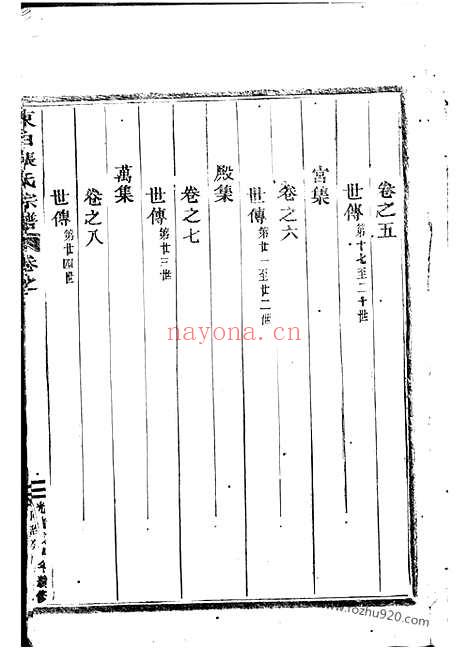 卷之五
世傳 第十七至二十世
宮集
卷之六
世傳 第廿一至廿二世
殿集
卷之七
世傳 第廿三世
萬集
卷之八
世傳 第廿四世
張氏宗譜 卷之
nayona.cn
www.fozhu920.com